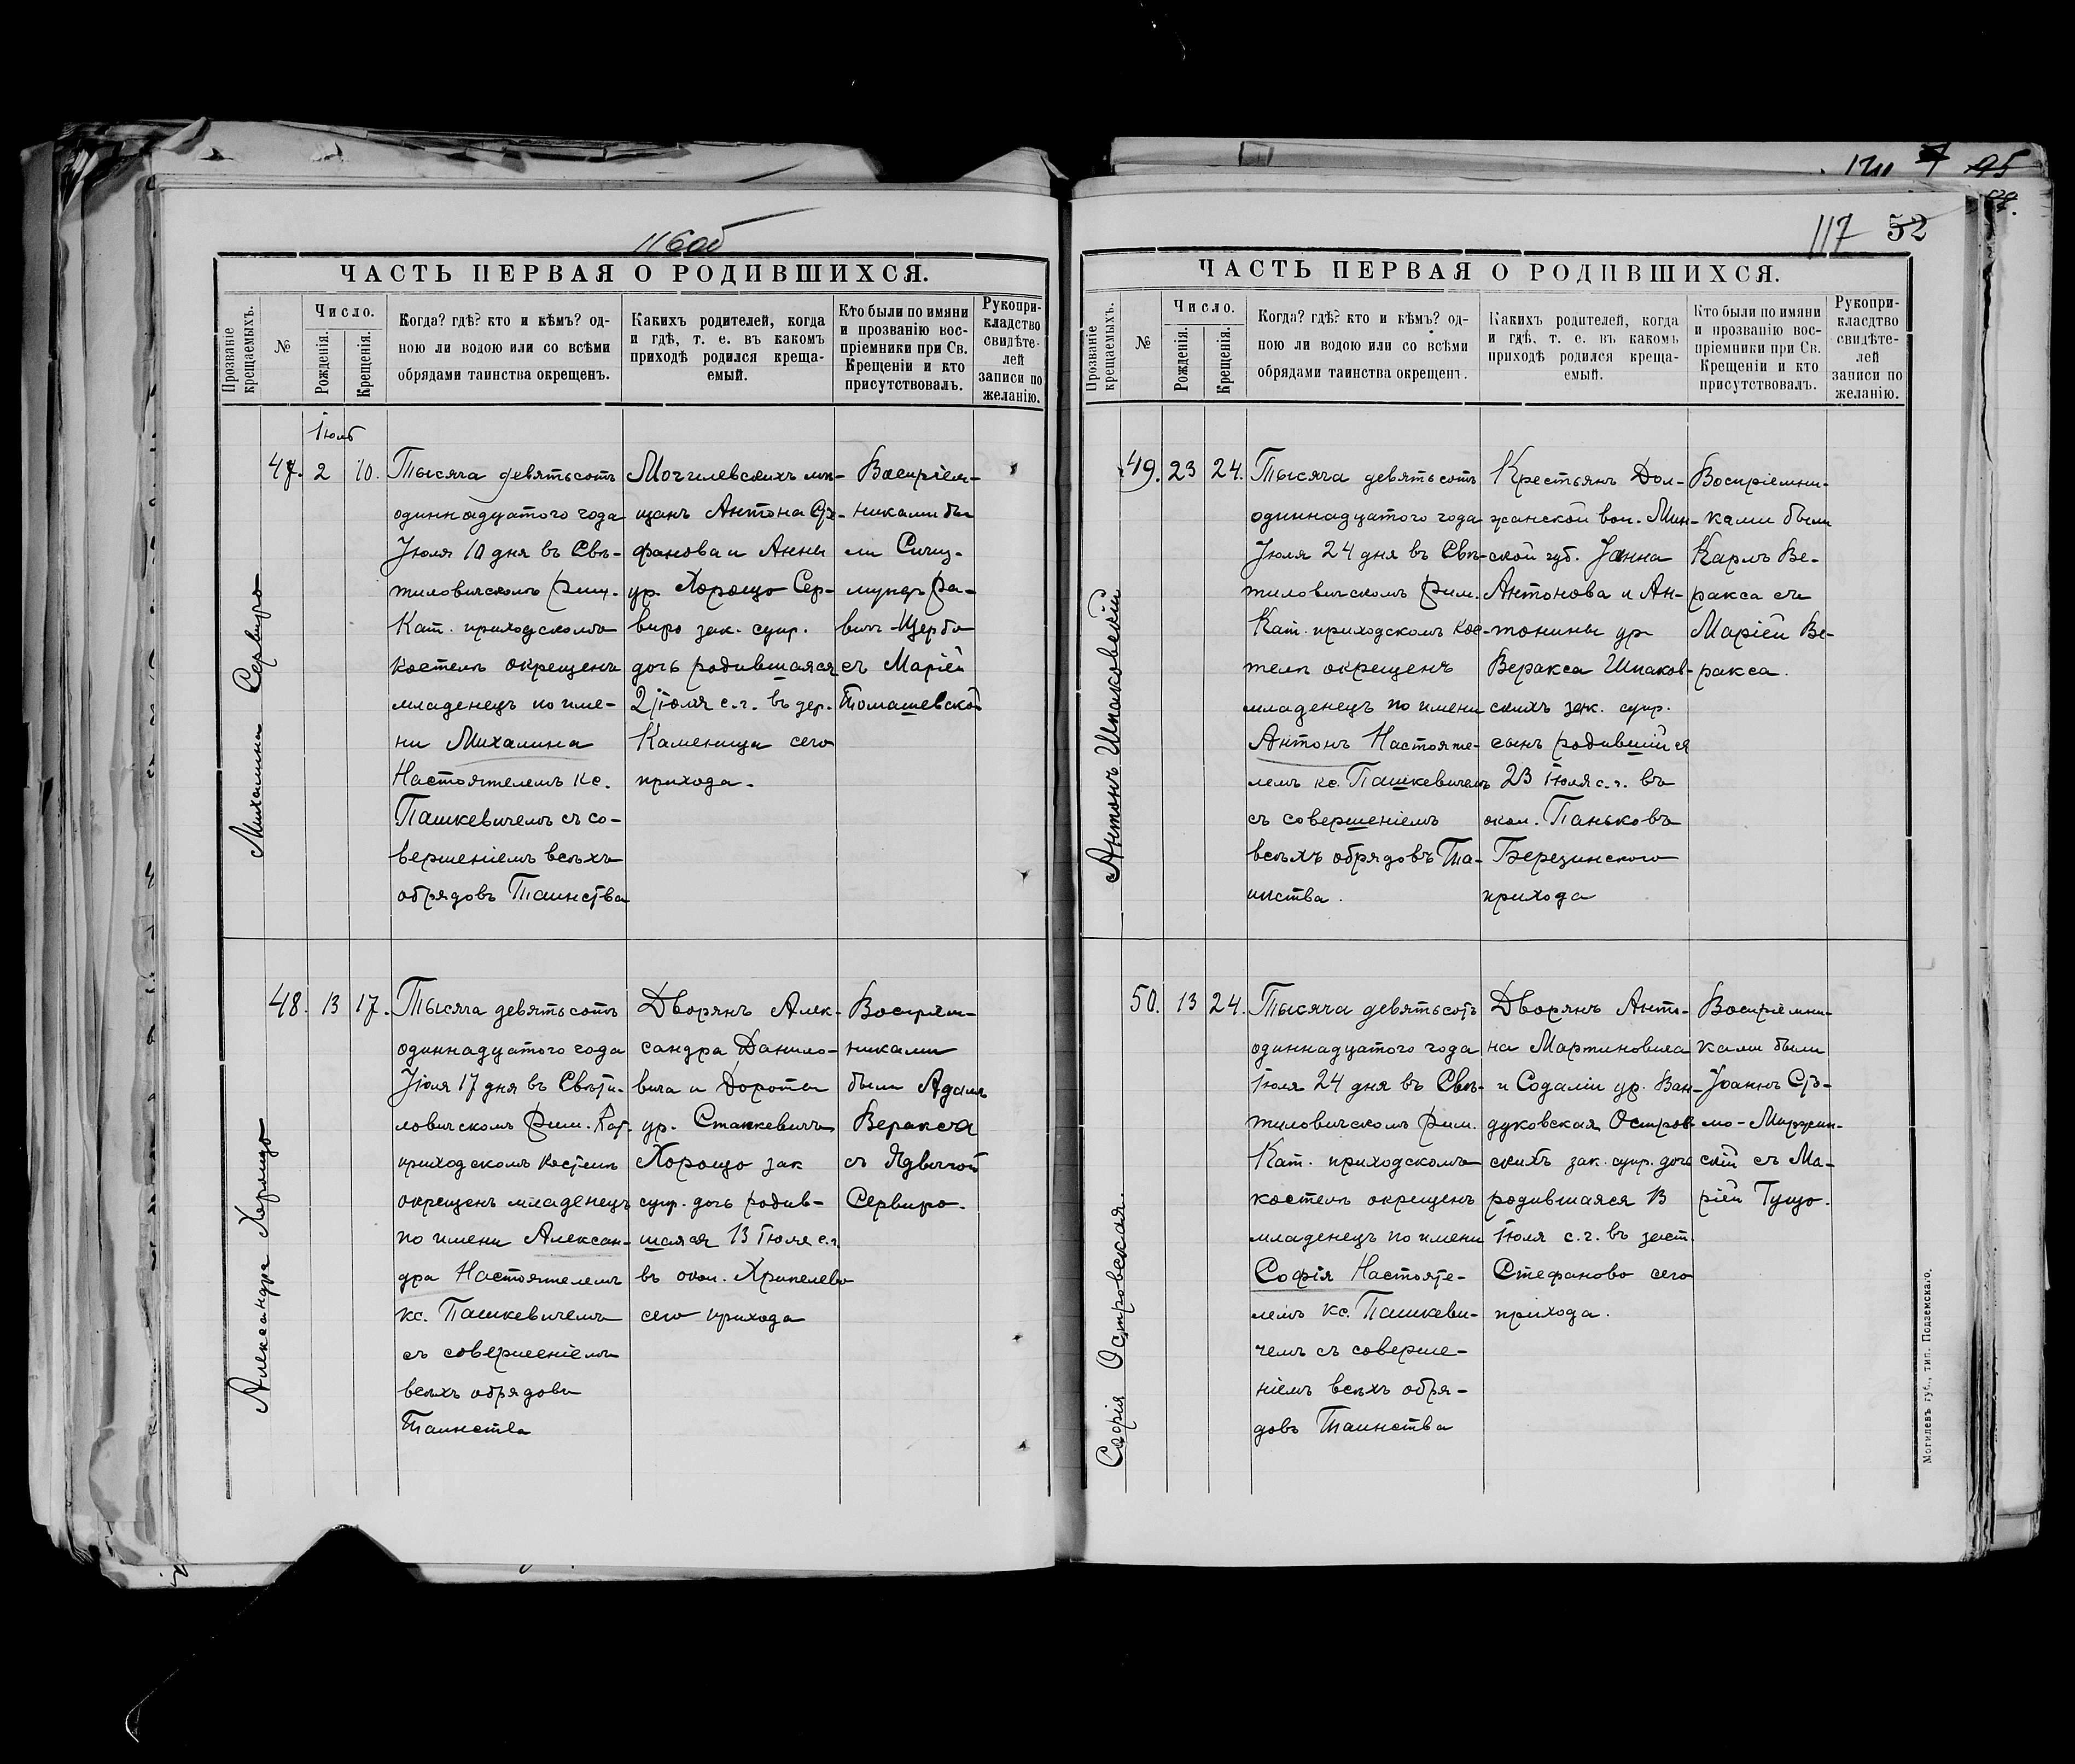 116об
ЧАСТЬ ПЕРВАЯ О РОДИВШИХСЯ.
Прозваніе крещаемыхъ.
№
Число.
Рожденія.
Крещенія.
Когда? гдѣ? кто и кѣмъ? од-
ною ли водою или со всѣми
обрядами таинства окрещенъ.
Какихъ родителей, когда
и гдѣ, т. е. въ какомъ
приходѣ родился креща-
емый.
Кто были по имяни
и прозванію вос-
пріемники при Св.
Крещеніи и кто
присутствовалъ.
Рукопри-
кладство
свидѣте-
лей
записи по
желанію.
Михалина Сервиро
Іюль
47. 2 10.
Тысяча девятьсотъ
одиннадцатого года
Іюля 10 дня въ Свѣ-
тиловичскомъ Рим.
Кат. приходскомъ
костелѣ окрещенъ
младенецъ по име-
ни Михалина
Настоятелемъ кс.
Пашкевичемъ съ со-
вершеніемъ всѣхъ
обрядовъ Таинства
Могилевскихъ мѣ-
щанъ Антона Сте-
фанова и Анны
ур. Хорощо Сер-
виро зак. супр.
дочь родившаяся
2 Іюля с.г. въ дер.
Каменица сего
прихода.
Воспріем-
никами бы-
ли Сигиз-
мундъ Ра-
вичъ-Щербо
съ Маріей
Томашевской
Александра Хорощо
48. 13 17.
Тысяча девятьсотъ
одиннадцатого года
Іюля 17 дня въ Свѣти-
ловичскомъ Рим. Кат.
приходскомъ костелѣ
окрещенъ младенецъ
по имени Алексан-
дра Настоятелемъ
кс. Пашкевичемъ
съ совершеніемъ
всѣхъ обрядовъ
Таинства
Дворянъ Алек-
сандра Данило-
вича и Доротеи
ур. Станкевичъ
Хорощо зак
супр. дочь родив-
шаяся 13 Іюля с.г.
въ окол. Хрипелево
сего прихода
Воспріем-
никами
были Адамъ
Веракса
съ Ядвигой
Сервиро.
117 52
ЧАСТЬ ПЕРВАЯ О РОДИВШИХСЯ.
Прозваніе крещаемыхъ.
№
Число.
Рожденія.
Крещенія.
Когда? гдѣ? кто и кѣмъ? од-
ною ли водою или со всѣми
обрядами таинства окрещенъ.
Какихъ родителей, когда
и гдѣ, т. е. въ какомъ
приходѣ родился креща-
емый.
Кто были по имяни
и прозванію вос-
пріемники при Св.
Крещеніи и кто
присутствовалъ.
Рукопри-
класдтво
свидѣте-
лей
записи по
желанію.
Антонъ Шпаковскій
49. 23 24.
Тысяча девятьсотъ
одиннадцатого года
Іюля 24 дня въ Свѣ-
тиловичскомъ Рим.
Кат. приходскомъ кос-
телѣ окрещенъ
младенецъ по имени
Антонъ Настояте-
лемъ кс. Пашкевичемъ
съ совершеніемъ
всѣхъ обрядовъ Та-
инства.
Крестьянъ Дол-
жанской вол. Мин-
ской губ. Іоанна
Антонова и Ан-
тонины ур
Веракса Шпаков-
скихъ зак. супр.
сынъ родившійся
23 Іюля с.г. въ
окол. Паньковъ
Березинского
прихода
Воспріемни-
ками были
Карлъ Ве-
ракса съ
Маріей Ве-
ракса.
Софія Островская.
50. 13 24.
Тысяча девятьсотъ
одиннадцатого года
Іюля 24 дня въ Свѣ-
тиловичскомъ Рим.
Кат. приходскомъ
костелѣ окрещенъ
младенецъ по имени
Софія Настояте-
лемъ кс. Пашкеви-
чемъ съ соверше-
ніемъ всѣхъ обря-
довъ Таинства
Дворянъ Анто-
на Мартиновича
и Содаліи ур. Ван-
дуковская Остров
скихъ зак. супр. дочь
родившаяся 13
Іюля с.г. въ заст.
Стефаново сего
прихода.
Воспріемни-
ками были
Іоаннъ
скій съ Ма-
ріей Тущо.
Могилевъ губ., тип. Подземскаго.